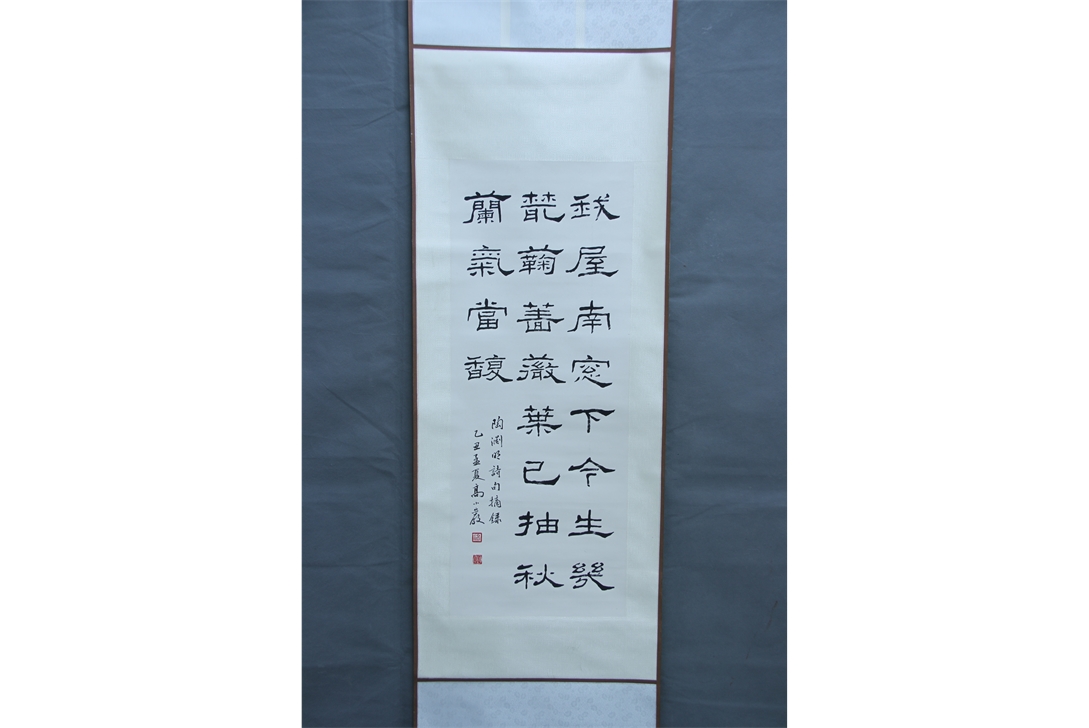 我屋南窓下今生幾
叢蘜薔薇葉已抽秋
蘭氣當馥
陶淵明詩句摘錄
乙丑孟夏高小嚴